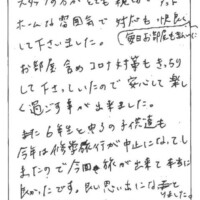 スタッフの方がとても親切でアット
ホームな雰囲気で 対応も快く
して下さいました。(毎日お部屋もきれいに)
お部屋含めコロナ対策もきっちり
して下さいましたので安心して楽し
く過ごす事が出来ました。
また6年生と中3の子供達も
今年は修学旅行が中止になってし
まったので今回の旅が出来て本当に
良かったです。良い思い出になりました。